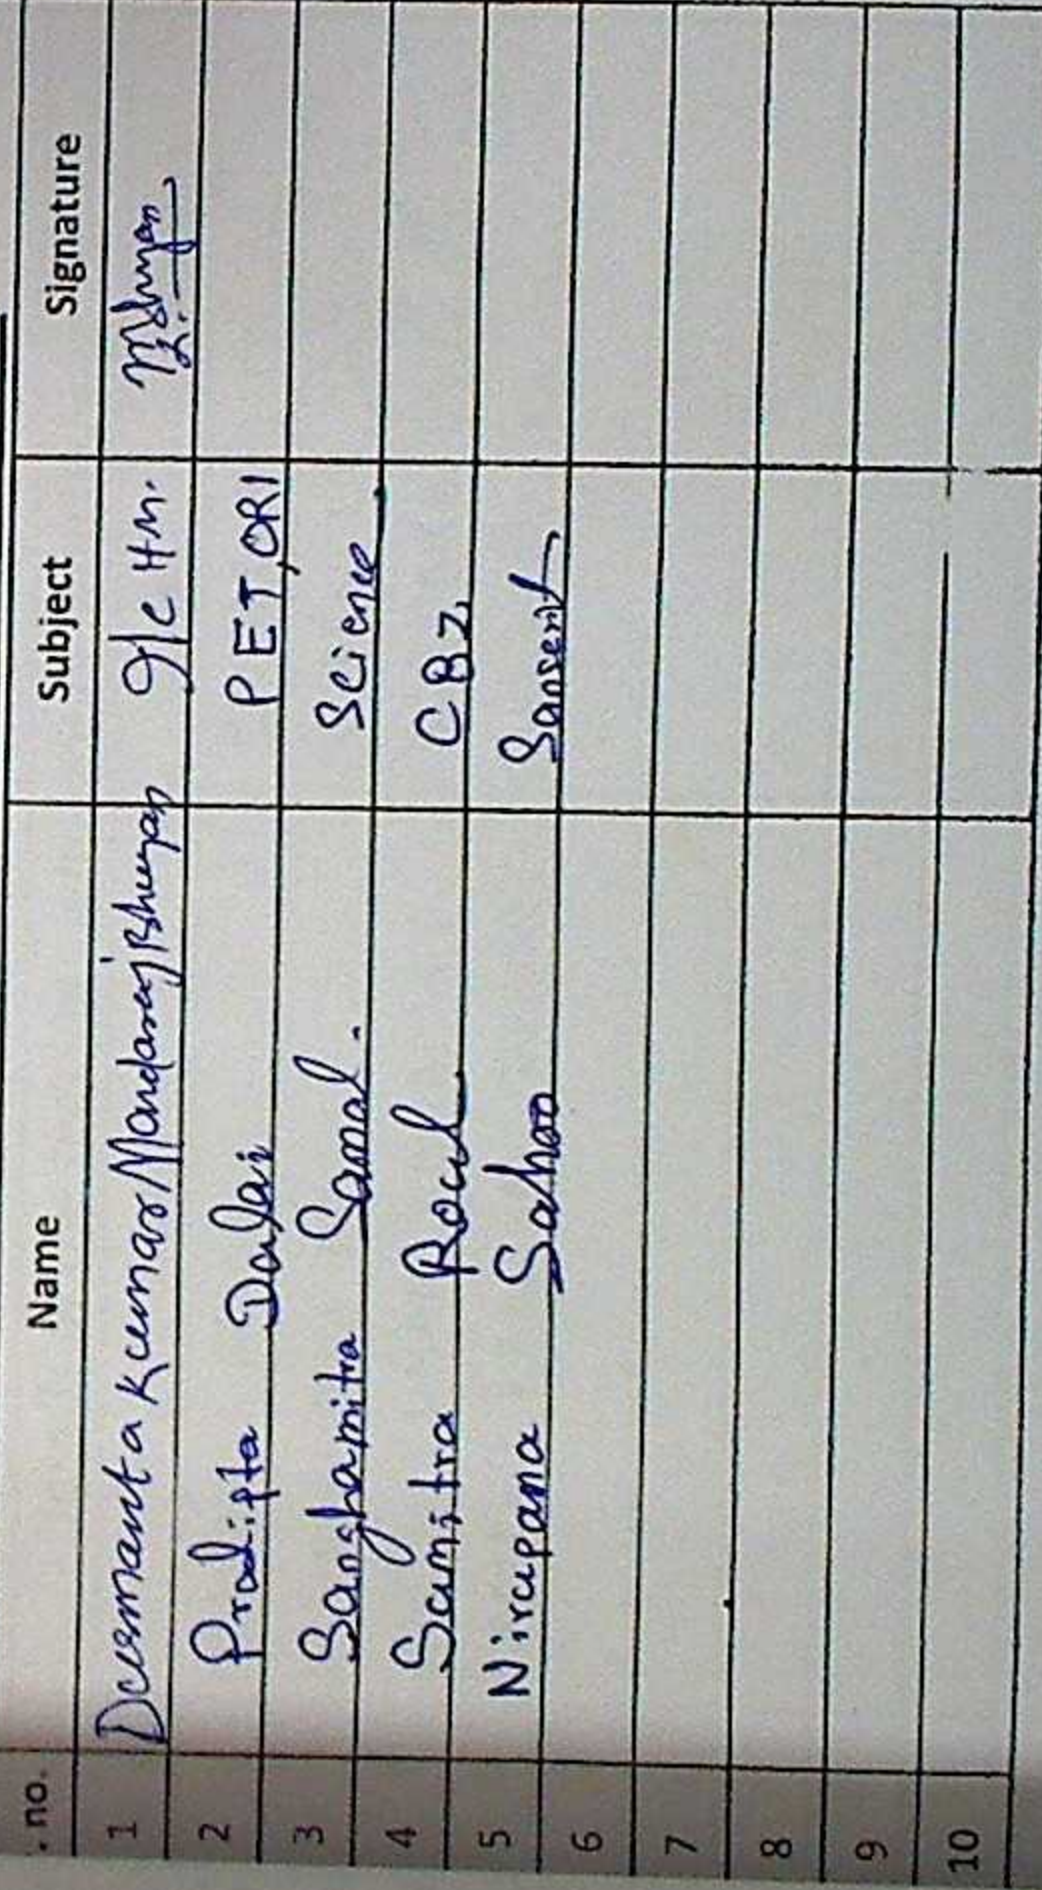 . no. Name Subject Signature
1 Dusmanta Kumar Mandaraj Bhuyan I/c H.M.
2 Pradipta Dalai PET, ORI
3 Sanghamitra Samal. Science
4 Sumitra Rout CBZ
5 Nirupama Sahoo Sanscrit
6
7
8
9
10